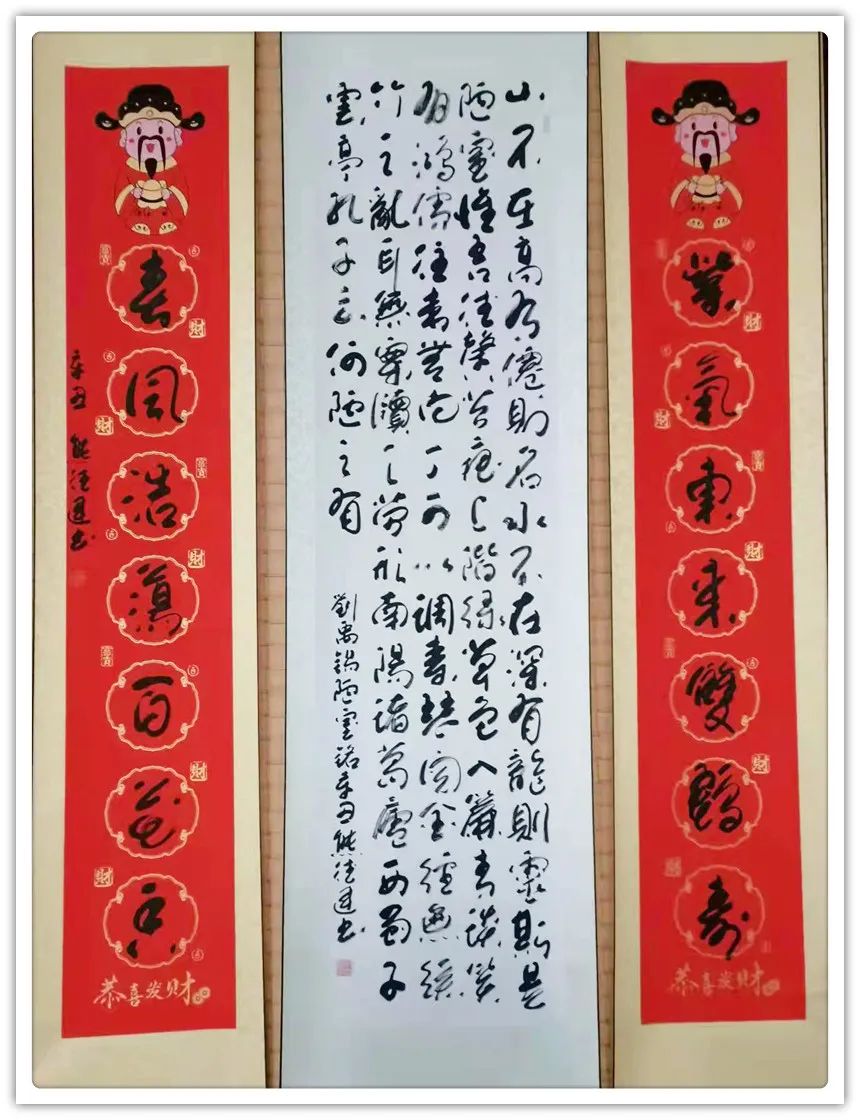 紫氣東來雙鶴壽
恭喜发财
山不在高有僊則名水不在深有龍則靈斯是
陋室惟吾德馨苔痕上階緑草色入簾青談笑
有鴻儒往来無白丁可以調素琴閲金經無絲
竹之亂耳無案牘之勞形南陽諸葛廬西蜀子
雲亭孔子云何陋之有
劉禹錫陋室銘辛丑熊德书
春風浩蕩百花香
辛丑 熊德书
恭喜发财